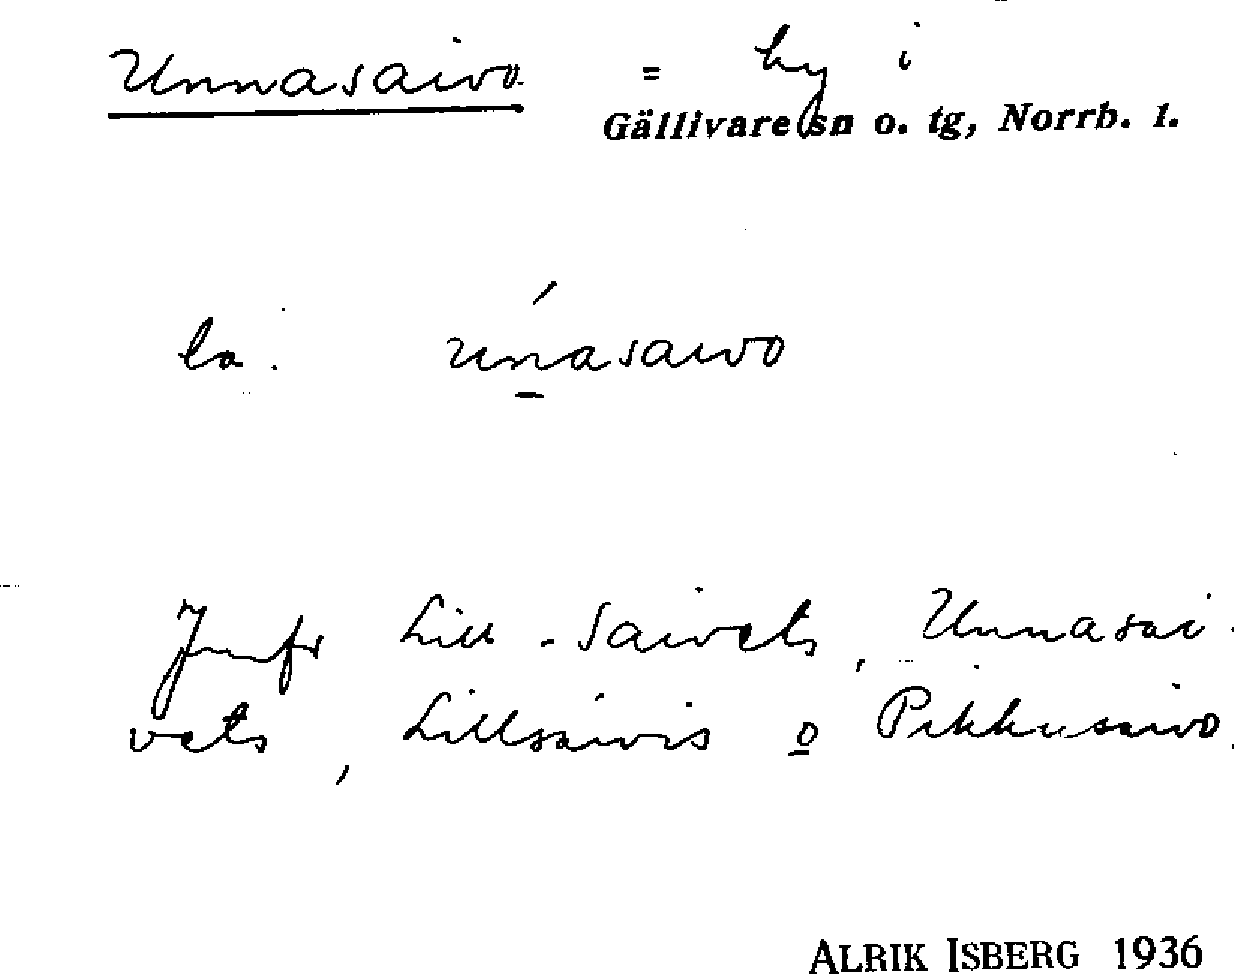 Unnasaivo = by i
Gällivare sn o. tg, Norrb. l.
la. unasaivo
Jmfr Lill-Saivets, Unnasai-
vets, Lillsaivis o Pikkusaivo.
ALRIK ISBERG 1936